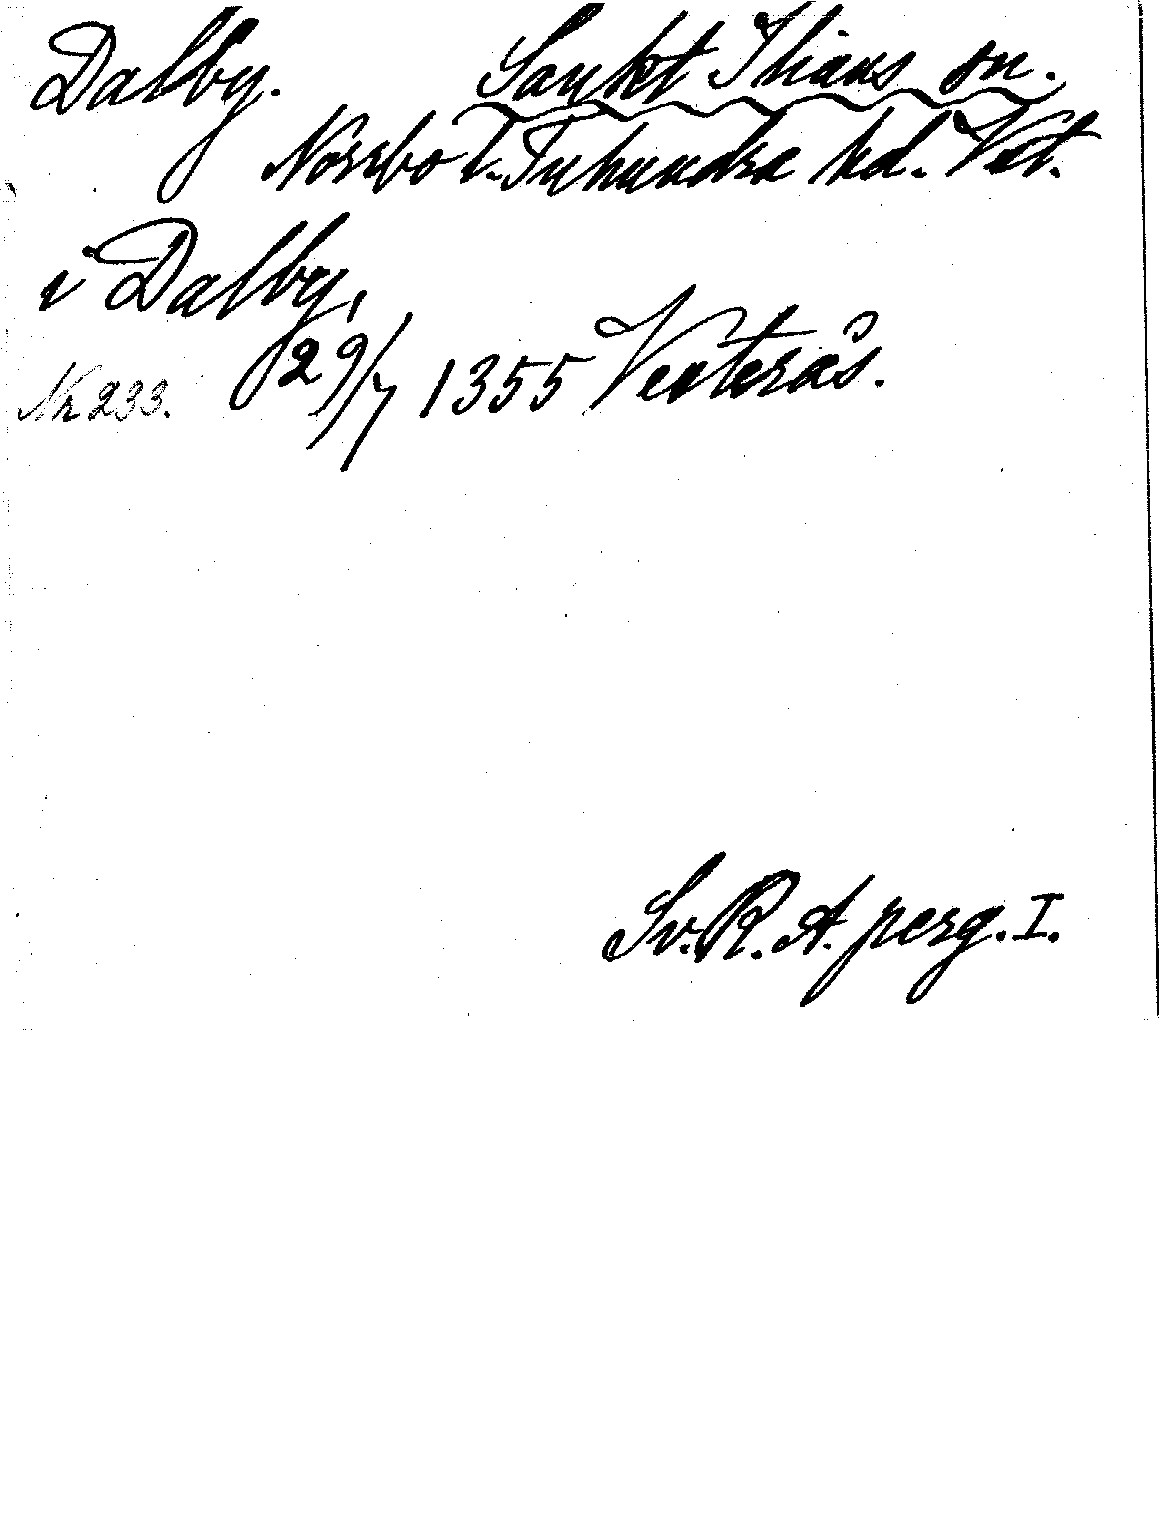 Dalby. Sankt Ilians sn.
Norrbo l. Tuhundra hd. Vst.
i Dalby,
Nr 233. 29/7 1355 Vesterås.
Sv. R. A. perg. I.